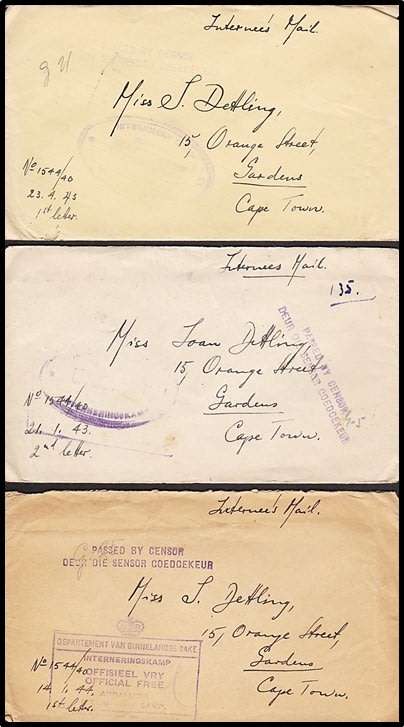 Internee's Mail.
g U
Miss J. Dettling,
15, Orange Street,
Gardens
Cape Town.
INTERNMENT
No 1544/40
23. 4. 43
1st letter.
Internees Mail.
135.
Miss Joan Dettling,
15, Orange Street,
Gardens
Cape Town.
PASSED BY CENSOR
DEUR DIE SENSOR GOEDGEKEUR
INTERNERINGSKAMP
No 1544/40
21. 1. 43.
2nd letter.
Internee's Mail.
PASSED BY CENSOR
DEUR DIE SENSOR GOEDGEKEUR
Miss J. Dettling,
15, Orange Street,
Gardens
Cape Town.
DEPARTEMENT VAN BINNELANDSE SAKE
INTERNERINGSKAMP
OFFISIEEL VRY
OFFICIAL FREE
No 1544/40
14. 1. 44.
1st letter.